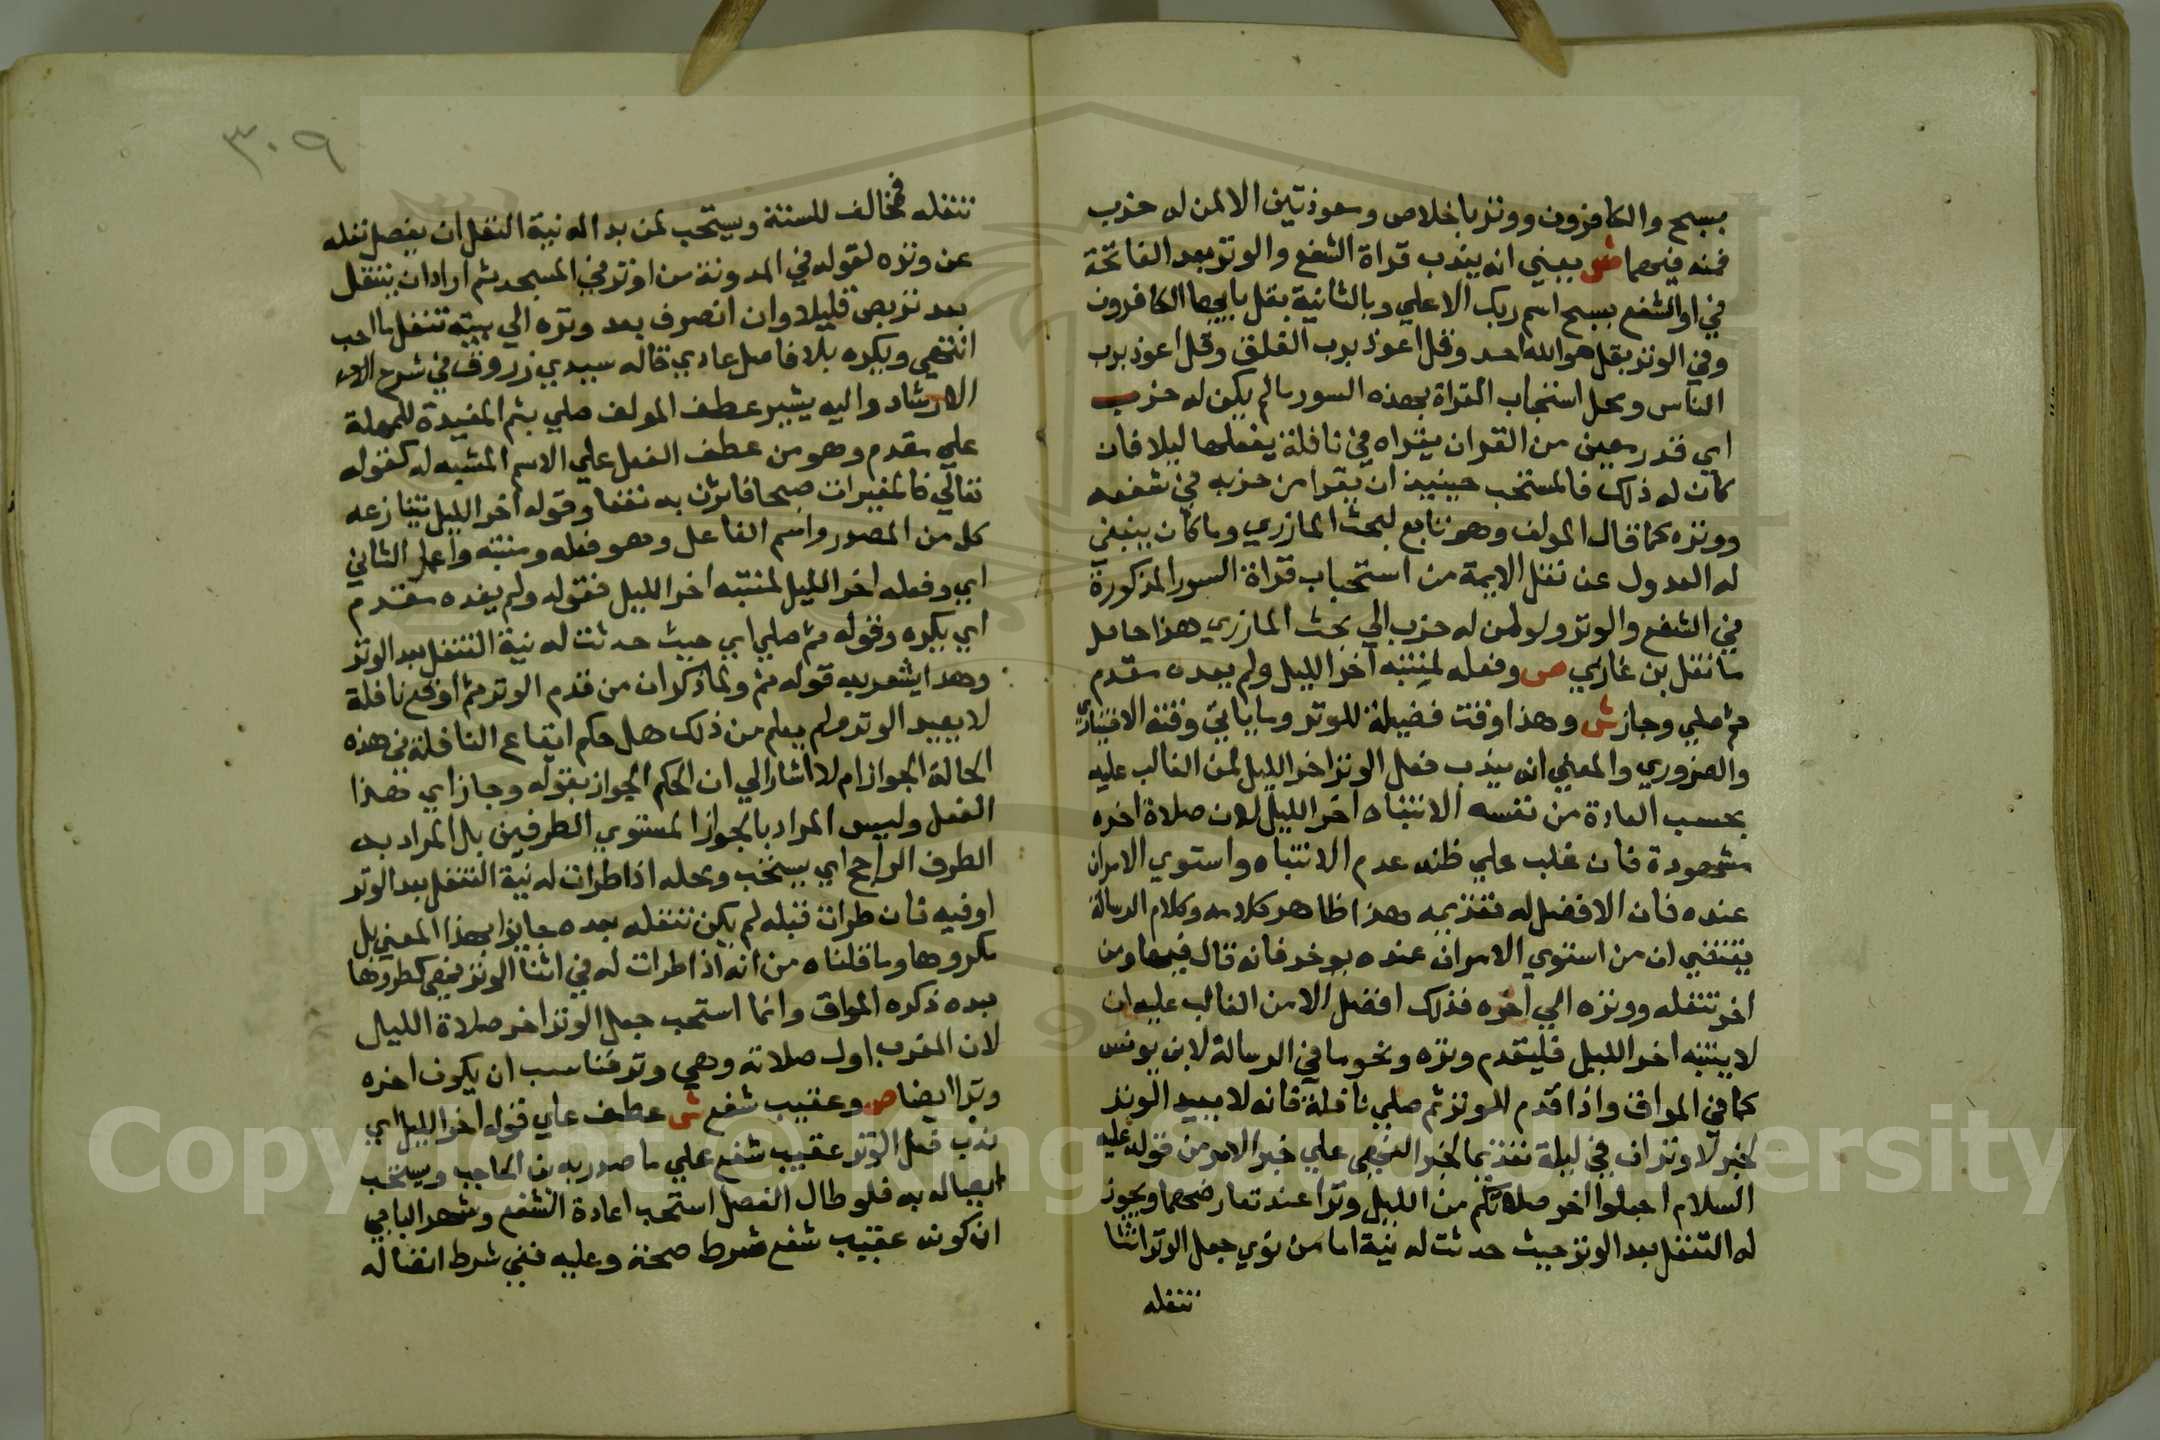 بسبح والكافرون ووتر باخلاص ومعوذتين الا لمن له حزب
فمنه فيهما ش يعني انه يندب قراة الشفع والوتر بعد الفاتحة
في اول الشفع بسبح اسم ربك الاعلي وبالثانية بقل يايها الكافرون
وفي الوتر بقل هو الله احد وقل اعوذ برب الفلق وقل اعوذ برب
الناس ومحل استحباب القراة بهذه السور ما لم يكن له حزب
اي قدر معين من القران يقراه في نافلة يفعلها ليلا فان
كان له ذلك فالمستحب حينيذ ان يقرا من حزبه في شفعه
ووتره كما قال المولف وهو تابع لبحث المازري وما كان ينبغي
له العدول عن نقل الايمة من استحباب قراة السور المذكورة
في الشفع والوتر ولو لمن له حزب الي بحث المازري هذا حاصل
ما نقل بن غازي ص وفعله لمنتبه آخر الليل ولم يعده مقدم
ثم صلي وجاز ش وهذا وقت فضيلة للوتر وما ياتي وقته الاختياري
والضروري والمعني انه يندب فعل الوتر اخر الليل لمن الغالب عليه
بحسب العادة من نفسه الانتباه اخر الليل لان صلاة اخره
مشهودة فان غلب علي ظنه عدم الانتباه واستوي الامران
عنده فان الافضل له تقديمه هذا ظاهر كلامه وكلام الرسالة
يقتضي ان من استوي الامران عنده يوخر فانه قال فيها ومن
اخر تنفله ووتره الي اخره فذلك افضل الا من الغالب عليه ان
لا ينتبه اخر الليل فليقدم وتره ونحو ما في الرسالة لابن يونس
كما في المواق واذا قدم الوتر ثم صلي نافلة فانه لا يعيد الوتر
لخبر لا وتران في ليلة تقديما لخبر النهي علي خبر الامر من قوله عليه
السلام اجعلوا اخر صلاتكم من الليل وترا عند تعارضهما ويجوز
له التنفل بعد الوتر حيث حدثت له نية اما من نوي جعل الوتر اثنا
تنفله
٣٠٩
تنفله فمخالف للسنة ويستحب لمن بدا له نية النفل ان يفصل نفله
عن وتره لقوله في المدونة من اوتر في المسجد ثم اراد ان يتنفل
بعد تربص قليلا وان انصرف بعد وتره الي بيته تنفل ما احب
انتهي ويكره بلا فاصل عادي قاله سيدي زروق في شرح
الارشاد واليه يشير عطف المولف صلي بثم المفيدة للمهلة
علي مقدم وهو من عطف الفعل علي الاسم المشبه له كقوله
تعالي فالمغيرات صبحا فاثرن به نقعا وقوله اخر الليل تنازعه
كل من المصدر واسم الفاعل وهو فعله ومنتبه واعمل الثاني
اي وفعله اخر الليل لمنتبه اخر الليل فقوله ولم يعده مقدم
اي يكره وقوله ثم صلي اي حيث حدثت له نية التنفل بعد الوتر
وهذا يشعر به قوله ثم ولما ذكر ان من قدم الوتر ثم اوقع نافلة
لا يعيد الوتر ولم يعلم من ذلك هل حكم ايقاع النافلة في هذه
الحالة الجواز ام لا اشار الي ان الحكم الجواز بقوله وجاز اي هذا
الفعل وليس المراد بالجواز المستوي الطرفين بل المراد به
الطرف الراجح اي يستحب ومحله اذا طرات له نية التنفل بعد الوتر
او فيه فان طرات قبله لم يكن تنفله بعده جايزا بهذا المعني بل
مكروها وما قلناه من انه اذا طرات له في اثنا الوتر فهي كطروها
بعده ذكره المواق وانما استحب جعل الوتر اخر صلاة الليل
لان المغرب اول صلاته وهي وتر فناسب ان يكون اخره
وترا ايضا ص وعقيب شفع ش عطف علي قوله اخر الليل اي
ندب فعل الوتر عقيب شفع علي ما صدر به بن الحاجب ويستحب
ايصاله به فلو طال الفصل استحب اعادة الشفع وشهر الباجي
ان كونه عقيب شفع شرط صحة وعليه ففي شرط اتصاله
Copyright © King Saud University